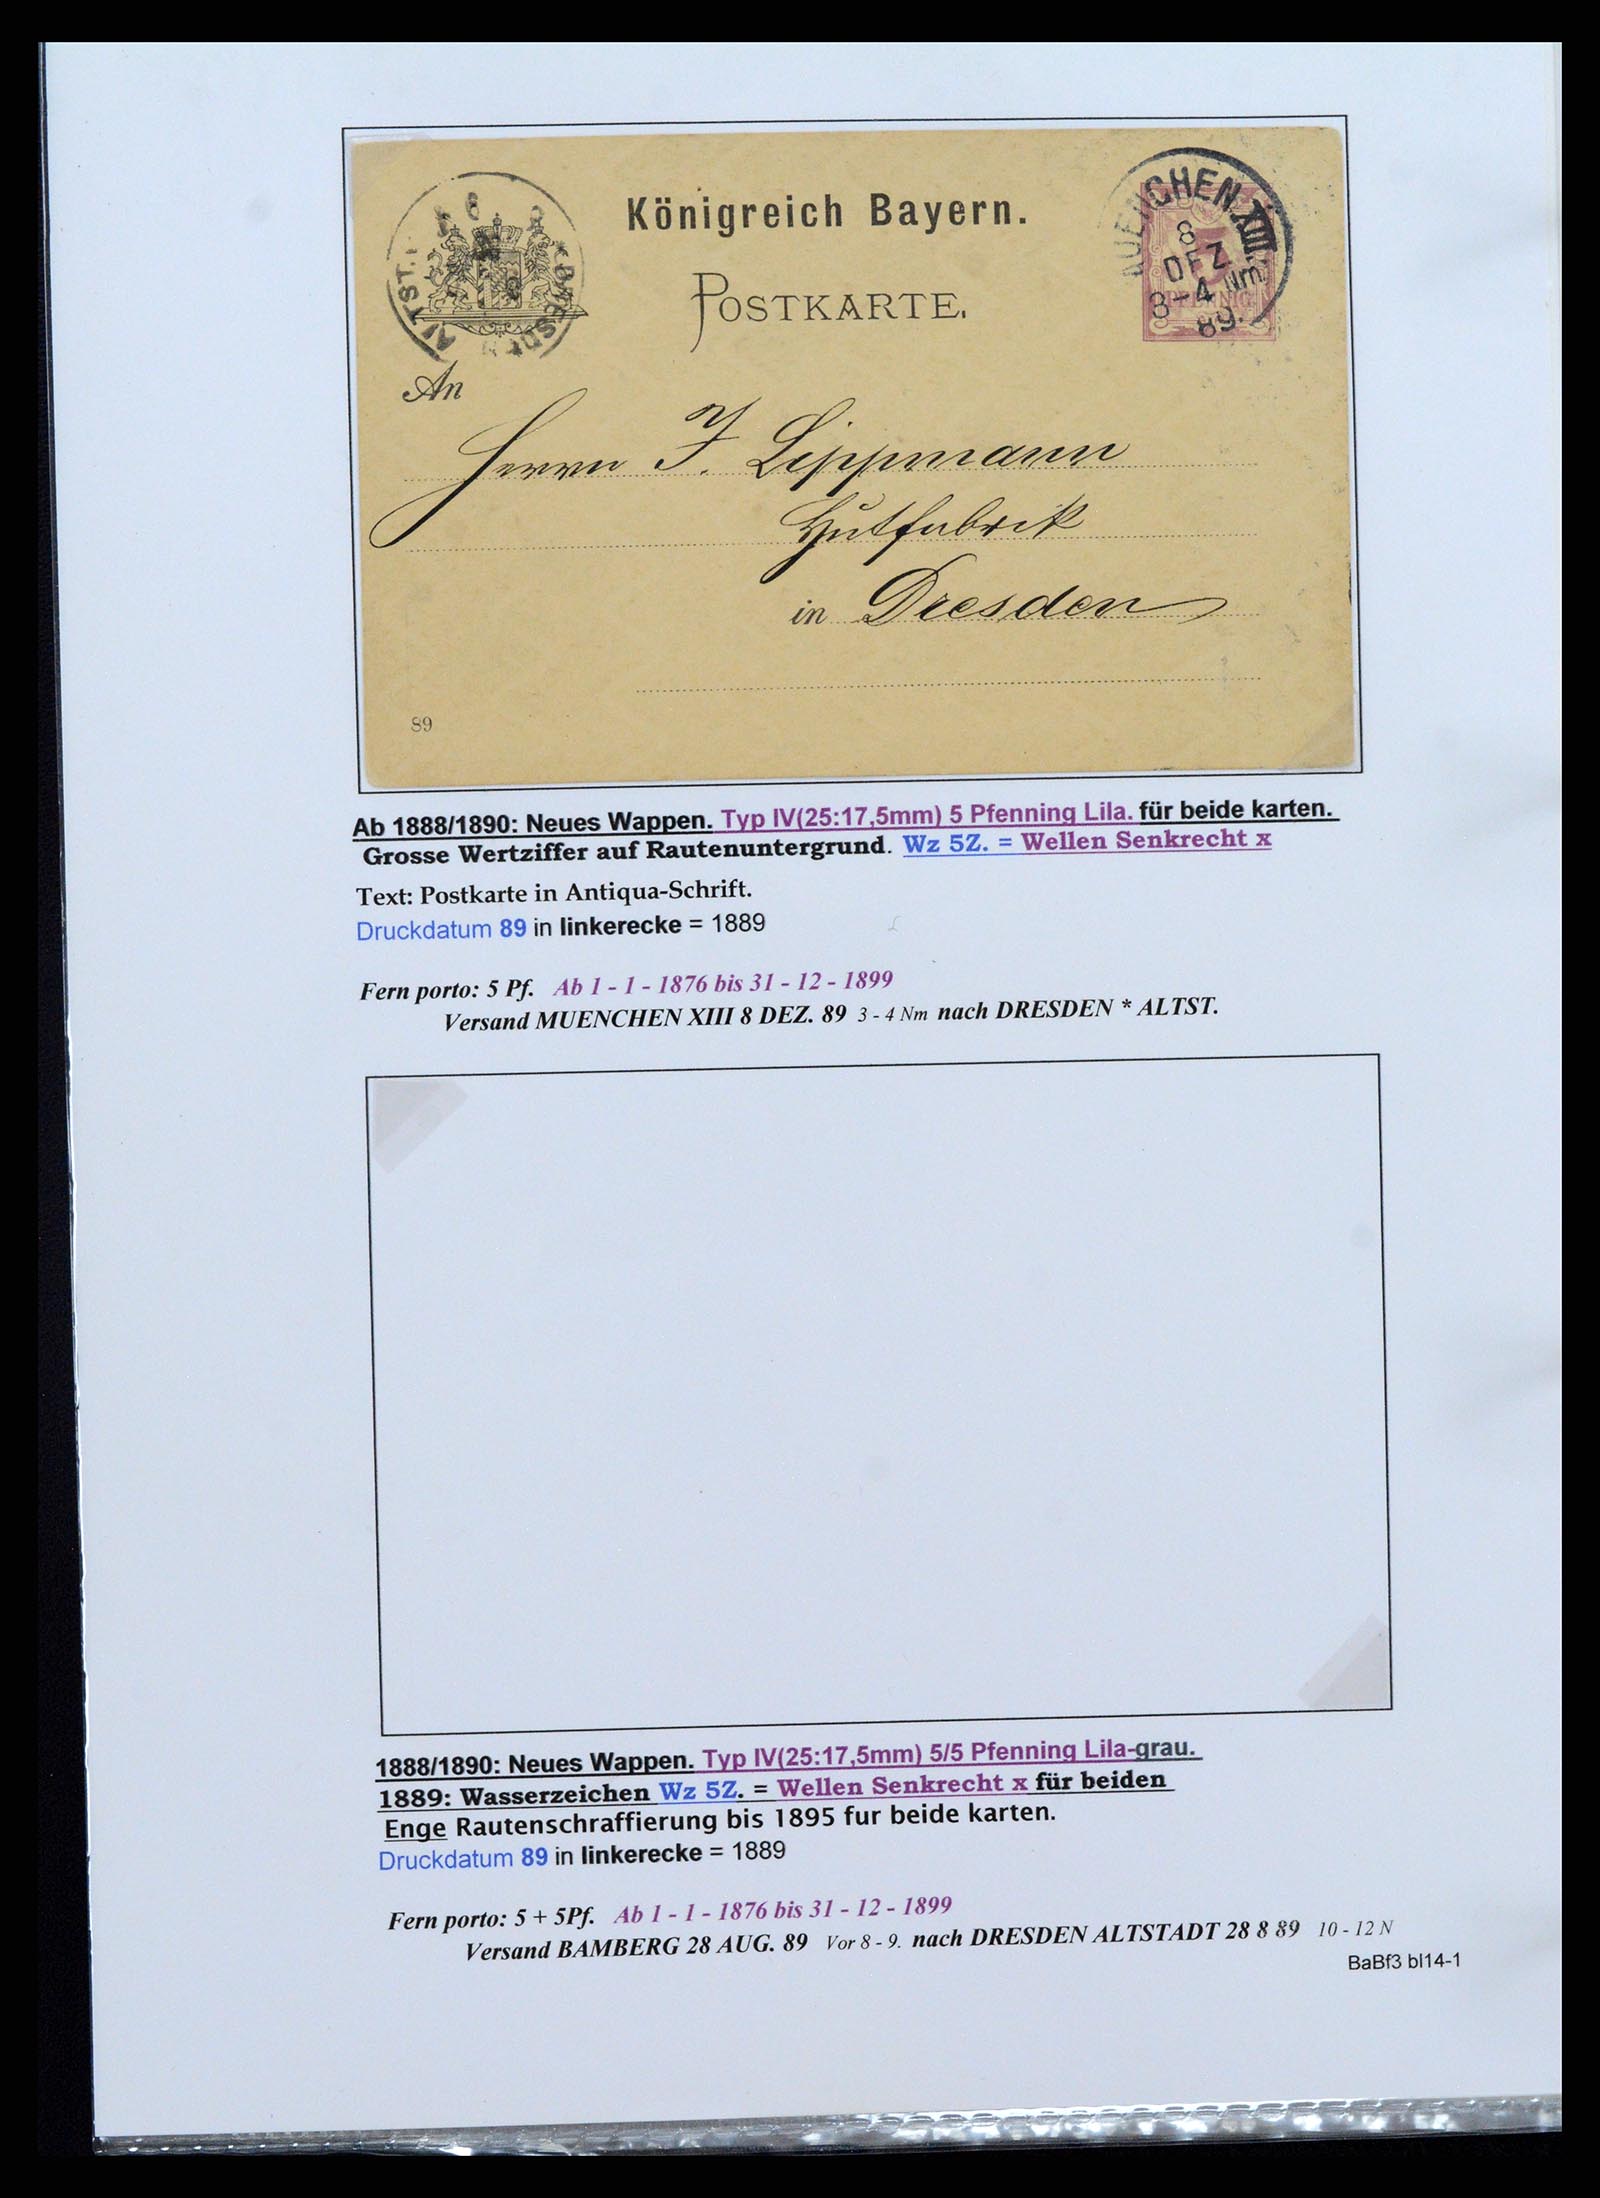 Königreich Bayern.
POSTKARTE.
MUENCHEN XIII.
8
DEZ.
3-4 Nm.
89.
PFENNIG
DRESDEN
ALTST.
An
Herrn J. Lippmann
Hutfabrik
in Dresden
89
Ab 1888/1890: Neues Wappen. Typ IV(25:17,5mm) 5 Pfenning Lila. für beide karten.
Grosse Wertziffer auf Rautenuntergrund. Wz 5Z. = Wellen Senkrecht x
Text: Postkarte in Antiqua-Schrift.
Druckdatum 89 in linkerecke = 1889
Fern porto: 5 Pf. Ab 1 - 1 - 1876 bis 31 - 12 - 1899
Versand MUENCHEN XIII 8 DEZ. 89 3 - 4 Nm nach DRESDEN * ALTST.
1888/1890: Neues Wappen. Typ IV(25:17,5mm) 5/5 Pfenning Lila-grau.
1889: Wasserzeichen Wz 5Z. = Wellen Senkrecht x für beiden
Enge Rautenschraffierung bis 1895 fur beide karten.
Druckdatum 89 in linkerecke = 1889
Fern porto: 5 + 5Pf. Ab 1 - 1 - 1876 bis 31 - 12 - 1899
Versand BAMBERG 28 AUG. 89 Vor 8 - 9. nach DRESDEN ALTSTADT 28 8 89 10 - 12 N
BaBf3 bl14-1